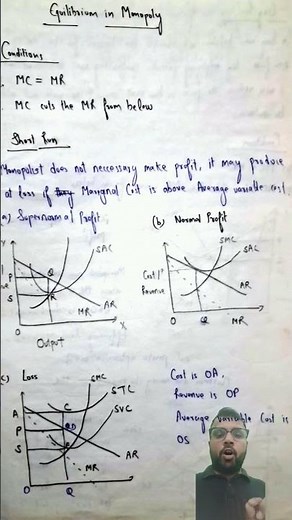 Equilibrium in Monopoly
Conditions
MC = MR
MC cuts the MR from below
Short Run
Monopolist does not neccessary make profit, it may produce
at loss if Marginal Cost is above Average variable cost
a) Supernormal Profit
(b) Normal Profit
SAC
P
Q
S
R
AR
MR
O
X
Output
SMC
SAC
Cost/
Revenue
AR
O
Q
MR
(c) Loss
SMC
STC
SVC
A
C
P
S
AR
MR
O
Q
Cost is OA,
Revenue is OP
Average variable Cost is
OS